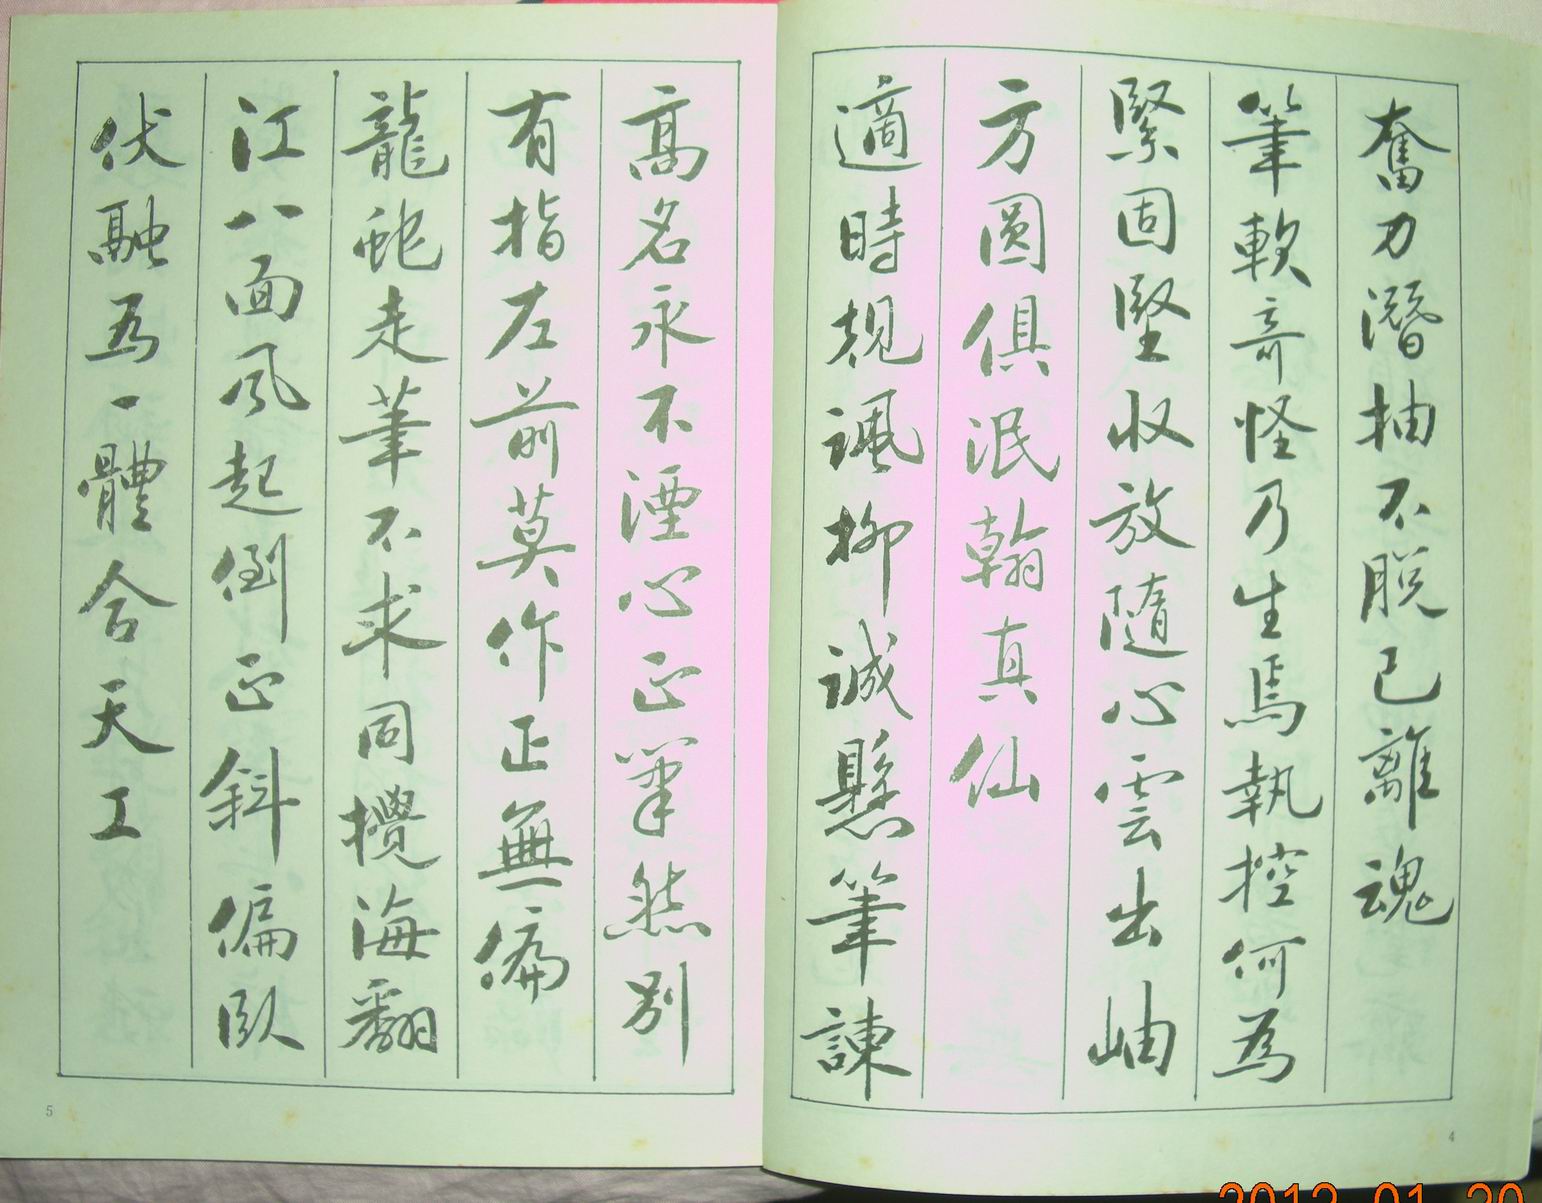 奮力潛抽不脫已離魂
筆軟奇怪乃生焉執控何為
緊固堅收放隨心雲出岫
方圓俱泯翰真仙
適時規諷柳誠懸筆諫
高名永不湮心正筆然別
有指左前莫作正無偏
龍蛇走筆不求同攪海翻
江八面風起倒正斜偏臥
伏融為一體合天工
4
5
2012 01 20